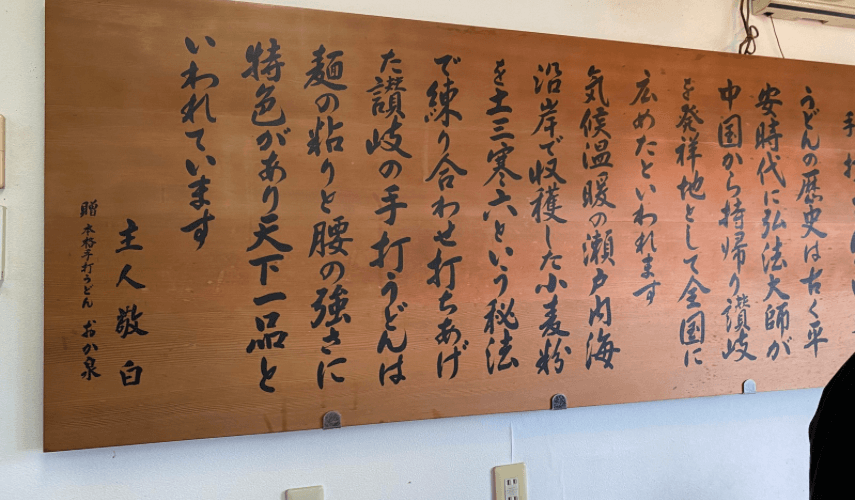 うどんの歴史は古く平
安時代に弘法大師が
中国から持帰り讃岐
を発祥地として全国に
広めたといわれます
気候温暖の瀬戸内海
沿岸で収穫した小麦粉
を土三寒六という秘法
で練り合わせ打ちあげ
た讃岐の手打うどんは
麺の粘りと腰の強さに
特色があり天下一品と
いわれています
主人敬白
贈 本格手打うどん おか泉